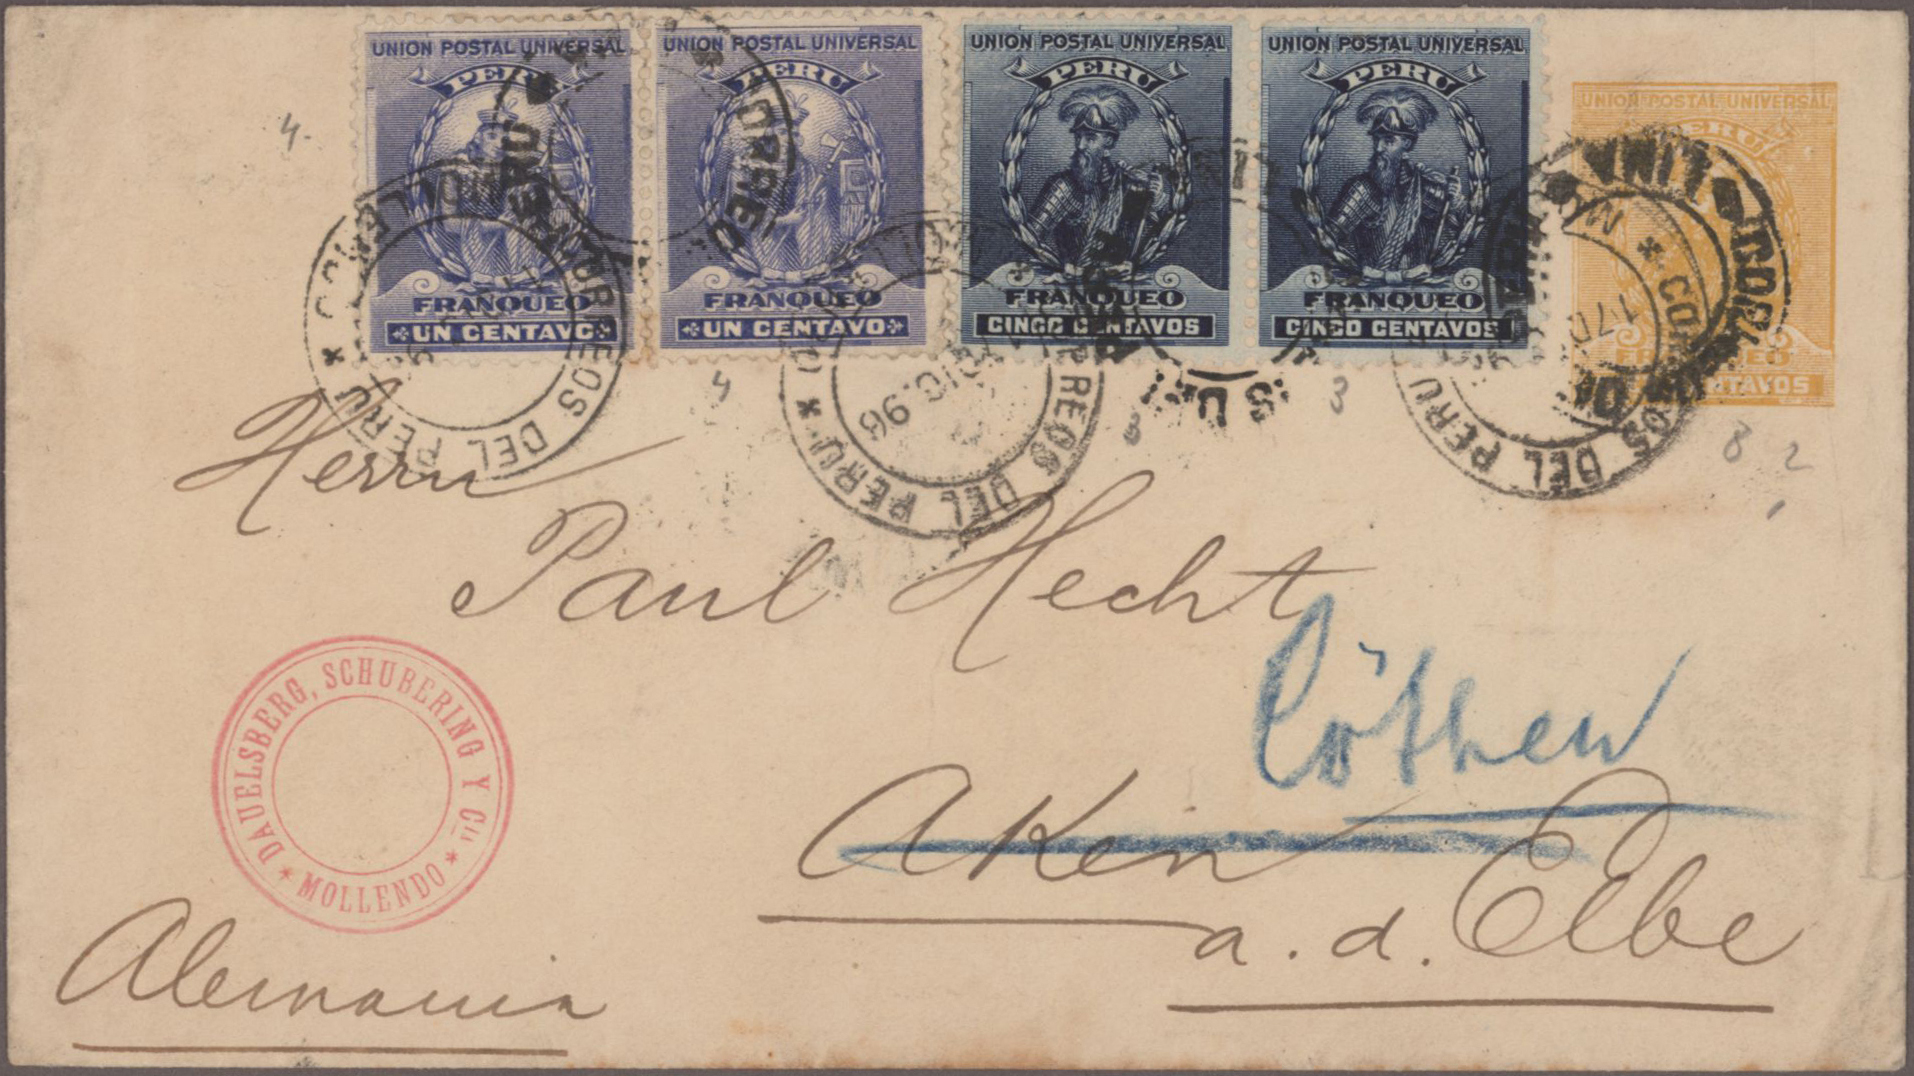 UNION POSTAL UNIVERSAL
PERU
FRANQUEO
UN CENTAVO
UNION POSTAL UNIVERSAL
PERU
FRANQUEO
UN CENTAVO
UNION POSTAL UNIVERSAL
PERU
FRANQUEO
CINCO CENTAVOS
UNION POSTAL UNIVERSAL
PERU
FRANQUEO
CINCO CENTAVOS
UNION POSTAL UNIVERSAL
PERU
FRANQUEO
CENTAVOS
CORREOS DEL PERU
MOLLENDO
CORREOS DEL PERU
DIC. 96
LIMA
CORREOS DEL PERU
17 D
4.
3
8 2
Herrn
Paul Hecht
Cöthen
Aken
a. d. Elbe
DAUELSBERG, SCHUBERING Y Cia
* MOLLENDO *
Alemania